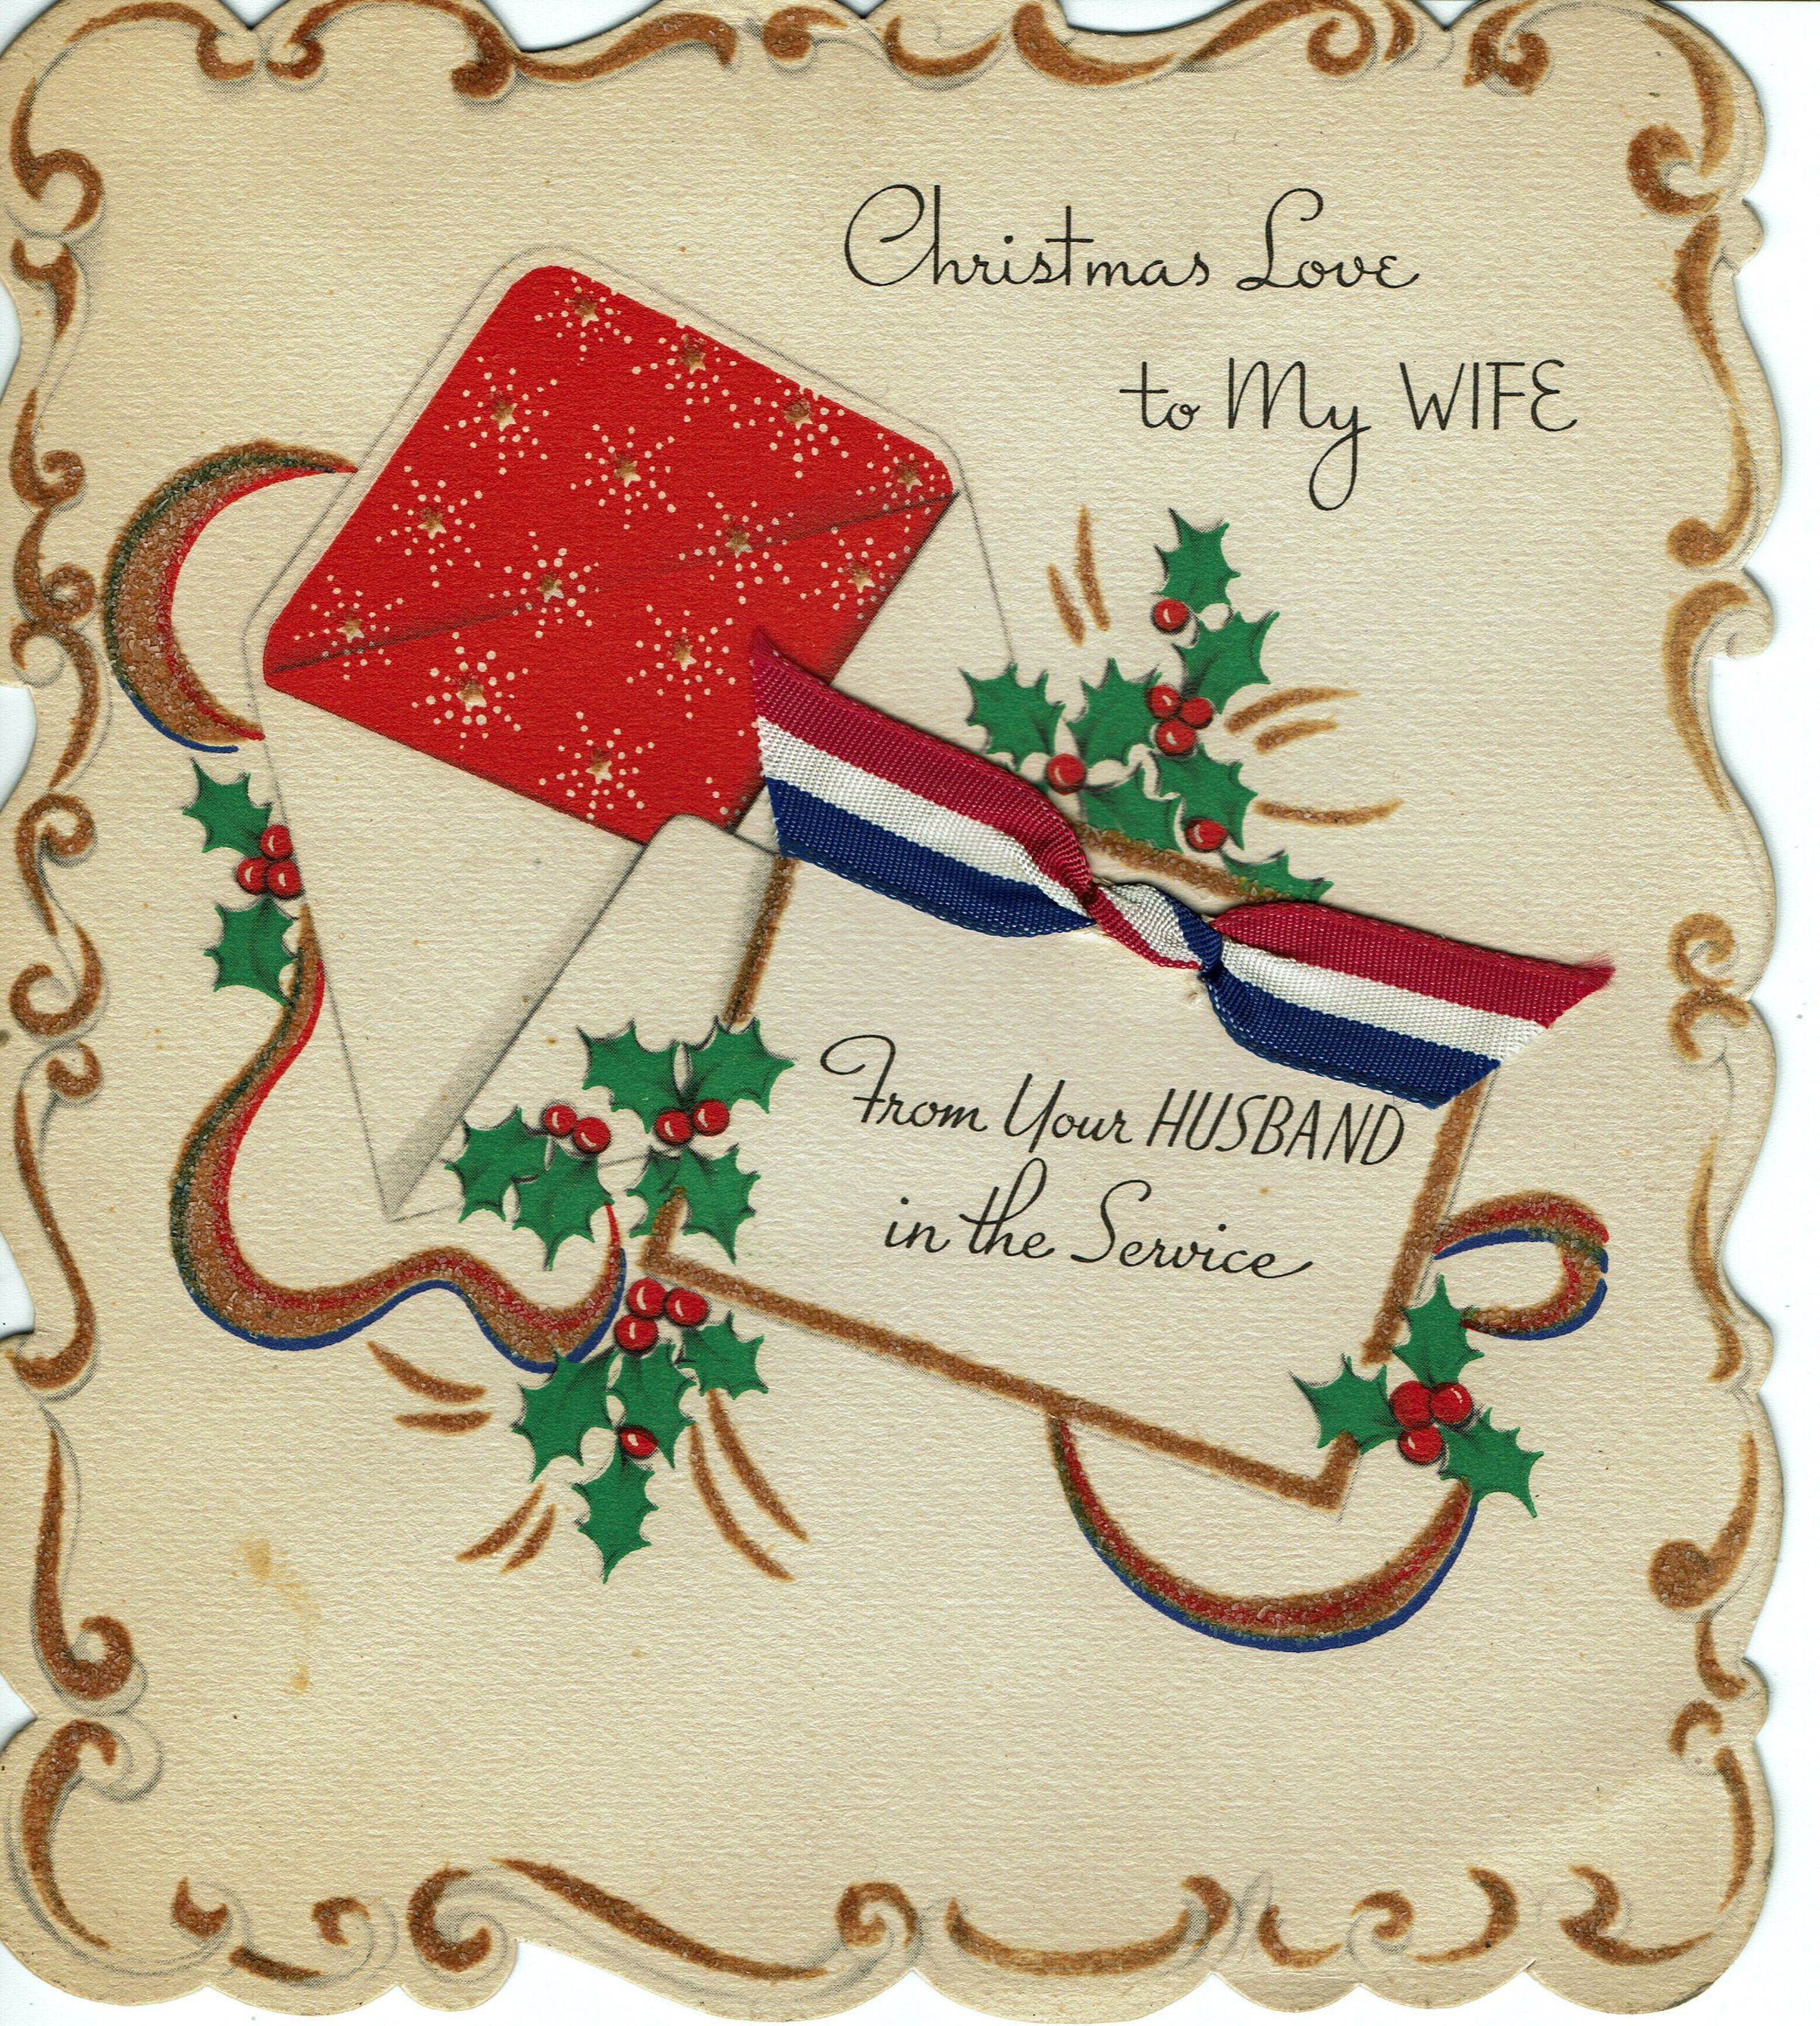 Christmas Love
to My WIFE
From Your HUSBAND
in the Service